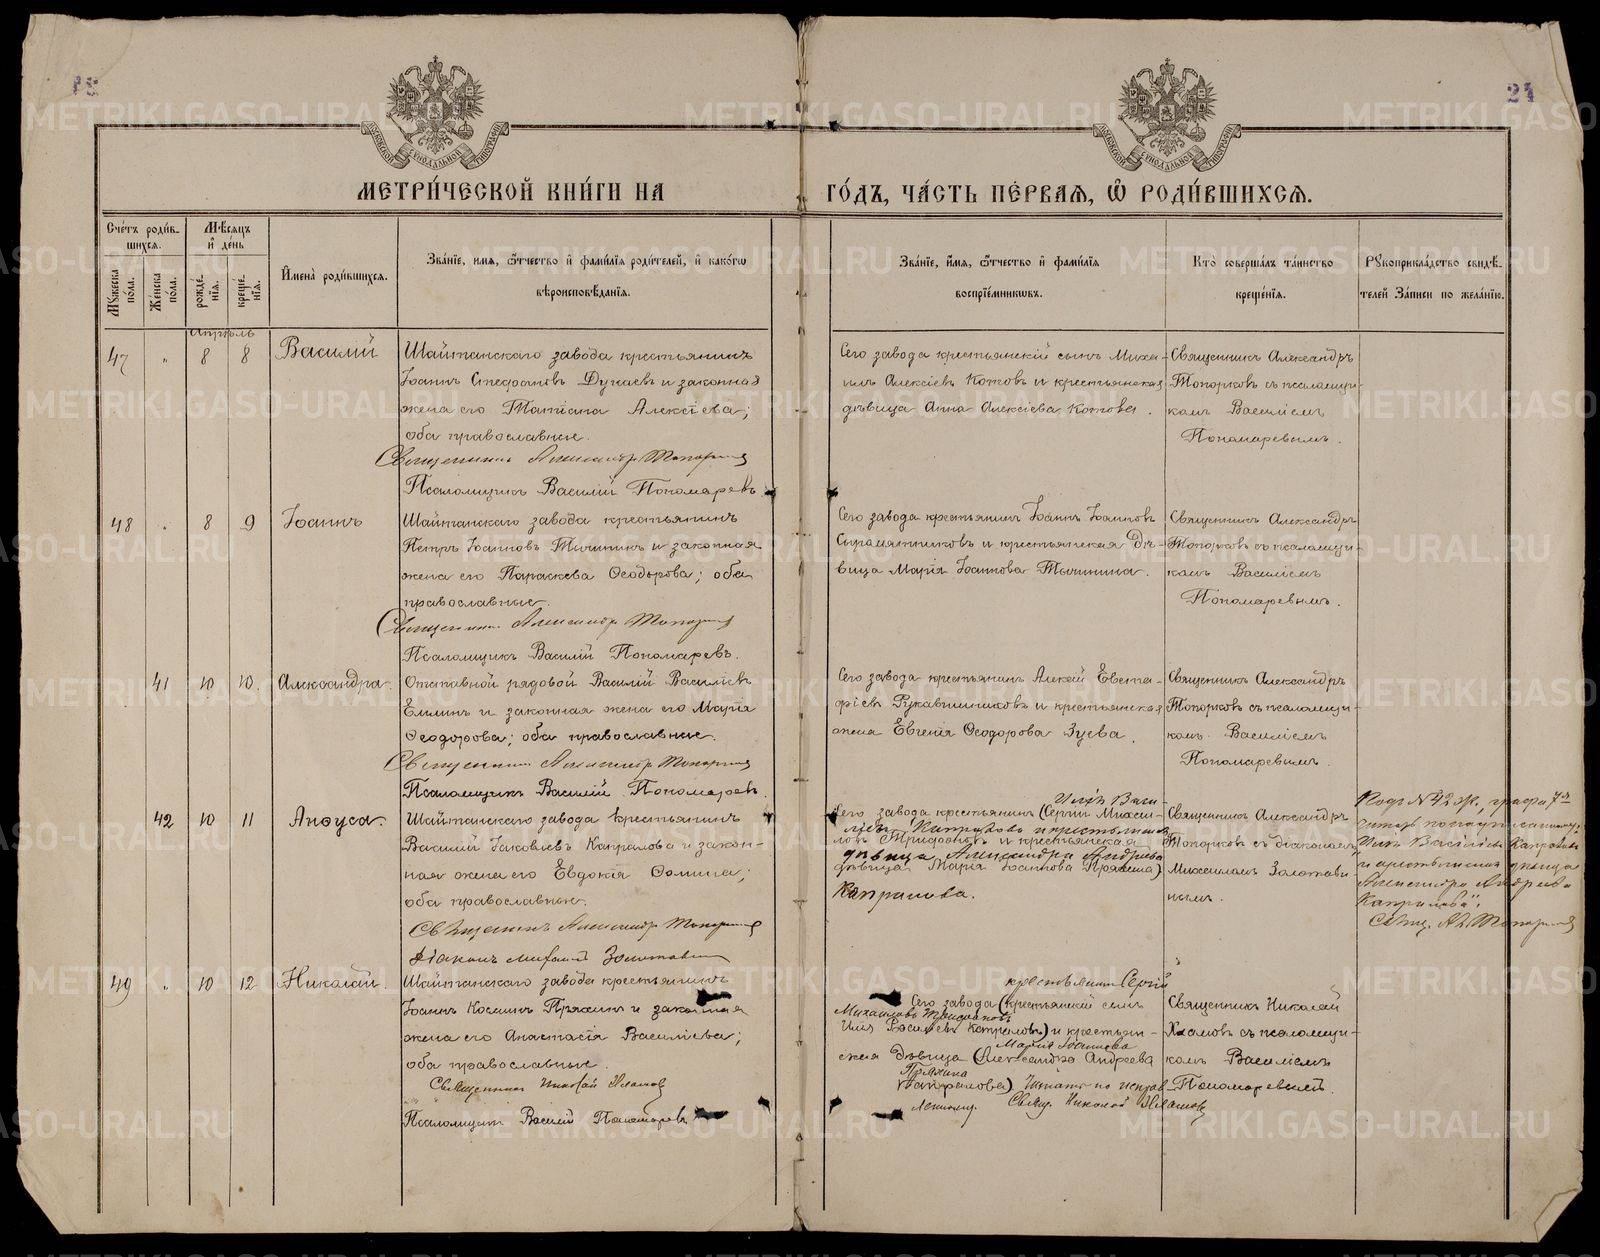 24
МОСКОВСКОЙ СУНОДАЛЬНОЙ ТИПОГРАФІИ
МОСКОВСКОЙ СУНОДАЛЬНОЙ ТИПОГРАФІИ
МЕТРИ́ЧЕСКОЙ КНИ́ГИ НА
ГО́ДЪ, ЧА́СТЬ ПЕ́РВАЯ, Ѽ РОДИ́ВШИХСЯ.
Сче́тъ роди́в-
шихся.
Мꙋжеска по́ла.
Же́нска по́ла.
Мѣ́сяцъ и҆ де́нь
рожде́-
нїя.
креще́-
нїя.
И҆мена̀ роди́вшихся.
Зва́нїе, имя, ѻ҆́тчество и҆ фами́лїя роди́телей, и҆ како́гѡ
вѣроисповѣ́данїя.
Зва́нїе, и҆́мя, ѻ҆́тчество и҆ фами́лїя
воспрїе́мникѡвъ.
Кто̀ соверша́лъ та́инство
креще́нїя.
Рꙋкоприкла́дство свидѣ́-
телей За́писи по жела́нїю.
Апрѣль
47 " 8 8 Василій
Шайтанскаго завода крестьянинъ
Іоаннъ Стефановъ Дунаевъ и законная
жена его Татіана Алексіева;
оба православные.
Священникъ Александръ Топорковъ
Псаломщикъ Василій Пономаревъ
Сего завода крестьянскій сынъ Миха-
илъ Алексіевъ Котовъ и крестьянская
дѣвица Анна Алексіева Котова.
Священникъ Александръ
Топорковъ съ псаломщи-
комъ Василіемъ
Пономаревымъ.
48 " 8 9 Іоаннъ
Шайтанскаго завода крестьянинъ
Петръ Іоанновъ Тычинин и законная
жена его Параскева Ѳеодорова; оба
православные.
Священникъ Александръ Топорковъ
Псаломщикъ Василій Пономаревъ.
Сего завода крестьянинъ Іоаннъ Іоанновъ
и крестьянская дѣ-
вица Марія Іоаннова
Священникъ Александръ
Топорковъ съ псаломщи-
комъ Василіемъ
Пономаревымъ.
41 10 10. Александра.
Отставной рядовой Василій Василіевъ
Ёлкинъ и законная жена его Марія
Ѳеодорова; оба православные.
Священникъ Александръ Топорковъ
Псаломщикъ Василій Пономаревъ.
Сего завода крестьянинъ Алексій Евста-
фіевъ Рукавишниковъ и крестьянская
жена Евгенія Ѳеодорова Зуева.
Священникъ Александръ
Топорковъ съ псаломщи-
комъ Василіемъ
Пономаревымъ.
42 10 11 Анѳуса.
Шайтанскаго завода крестьянинъ
Василій Іаковлевъ Капралова и закон-
ная жена его Евдокія Ѳомина;
оба православные.
Священникъ Александръ Топорковъ
Діаконъ Михаилъ Золотавинъ
Илія Васи-
Сего завода крестьянинъ (Сергій Михаи-
ліевъ Капраловъ и крестьянская
ловъ Трифоновъ и крестьянская
дѣвица Александра Андреева
дѣвица Марія Іоаннова Пряхина)
Капралова.
Священникъ Александръ
Топорковъ съ діакономъ
Михаиломъ Золотави-
нымъ.
Подъ № 42 ж., графа 7я
Илія Василіевъ Капраловъ
и крестьянская дѣвица
Александра Андреева
Капралова".
Свящ. Ал. Топорковъ
49 " 10 12 Николай.
Шайтанскаго завода крестьянинъ
Іоаннъ Космин Пряхин и законная
жена его Анастасія Василіева;
оба православные.
Священникъ Николай Хламовъ
Псаломщикъ Василій Пономаревъ
крестьянинъ Сергій
Сего завода (крестьянскій сынъ
Михайловъ Трифоновъ
Илія Василіевъ Капраловъ) и крестьян-
Марія Іоаннова
ская дѣвица (Александра Андреева
Пряхина
Капралова) Читать по исправ-
ленному. Свящ. Николай Хламовъ
Священникъ Николай
Хламовъ съ псаломщи-
комъ Василіемъ
Пономаревымъ.
METRIKI.GASO-URAL.RU